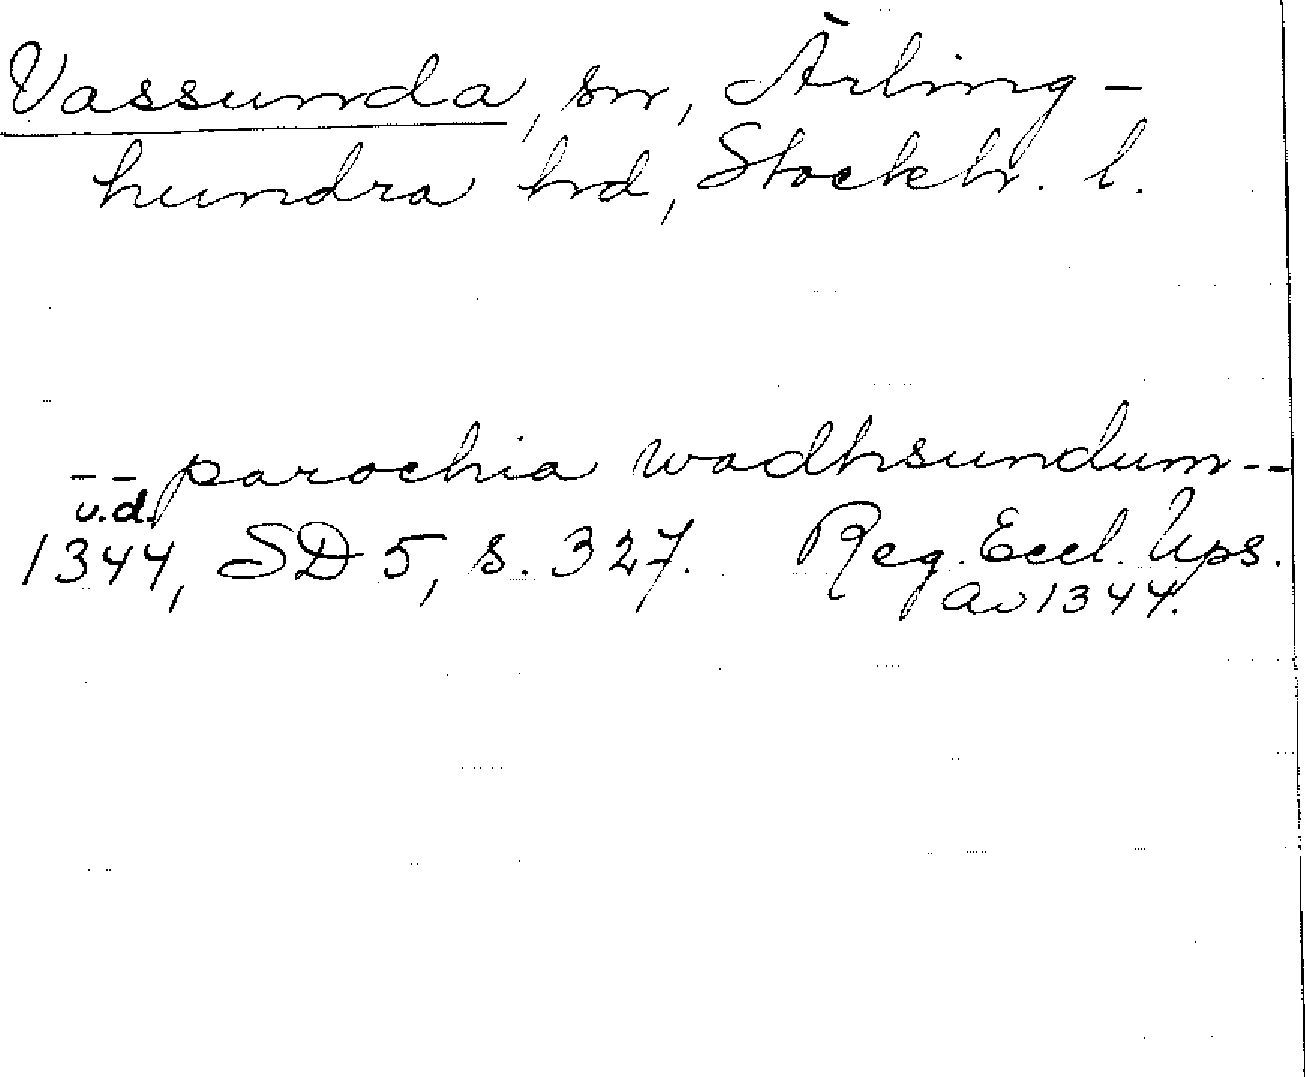 Vassunda, sn, Ärling-
hundra hrd, Stockh. l.
-- parochia wadhsundum --
u.d.
1344, SD 5, s. 327. Reg. Eccl. Ups.
av 1344.